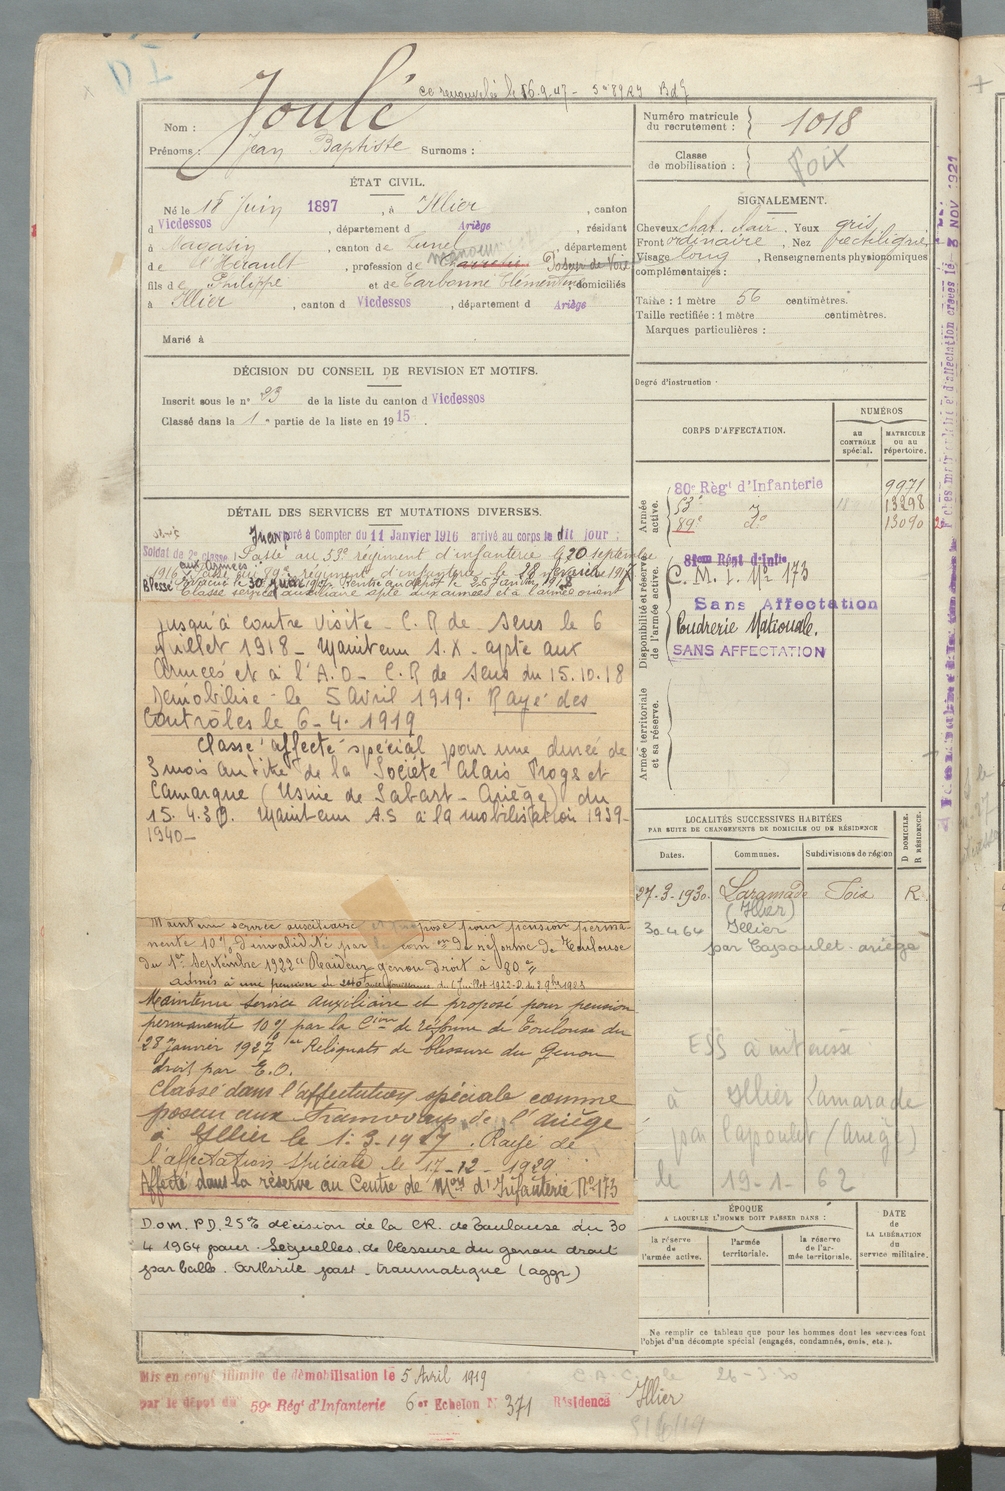 ce renouvelée le 16.9.47 -
Nom : Joulé
Prénoms : Jean Baptiste Surnoms :
Numéro matricule
du recrutement : 1018
Classe
de mobilisation : Foix
ÉTAT CIVIL.
Né le 18 Juin 1897, à Illier, canton
d Vicdessos, département d Ariège, résidant
à Magasin, canton de Lunel, département
de l'Hérault, profession de manœuv Poseur de Voie
fils de Philippe et de Carbonne Clémentine domiciliés
à Illier, canton d Vicdessos, département d Ariège
Marié à
SIGNALEMENT.
Cheveux chat. clair, Yeux gris
Front ordinaire, Nez rectiligne
Visage long, Renseignements physionomiques
complémentaires :
Taille : 1 mètre 56 centimètres.
Taille rectifiée : 1 mètre centimètres.
Marques particulières :
Degré d'instruction :
DÉCISION DU CONSEIL DE REVISION ET MOTIFS.
Inscrit sous le n° 23 de la liste du canton d Vicdessos
Classé dans la 1e partie de la liste en 1915.
CORPS D'AFFECTATION.
NUMÉROS
AU CONTRÔLE spécial.
MATRICULE OU AU répertoire.
Armée active.
80e Régt d'Infanterie 9971
53e do 13298
89e do 13090
Disponibilité et réserve de l'armée active.
81eme Régt d'Infie
C. M. I. No 173
Sans Affectation
Poudrerie Nationale.
SANS AFFECTATION
Armée territoriale et sa réserve.
DÉTAIL DES SERVICES ET MUTATIONS DIVERSES.
Incorporé à Compter du 11 Janvier 1916 arrivé au corps le dit jour ;
Soldat de 2e classe Passé au 53e régiment d'infanterie le 20 septembre
1916 Passé au 89e régiment d'infanterie le 28 février 1917
aux Armées
Blessé Evacué le 30 Rentré au dépôt le 25 Janvier 1918
Classé service auxiliaire apte aux armées et à l'armée orient
jusqu'à contre visite C. R de Sens le 6
Juillet 1918 - Maintenu S.X - apte aux
Armées et à l'A.O - C.R de Sens du 15.10.18
Démobilisé le 5 Avril 1919. Rayé des
Contrôles le 6-4. 1919
Classé affecté spécial pour une durée de
3 mois au titre de la Société Alais Frogs et
Camargue (Usine de Sabart - Ariège) du
15. 4.39. Maintenu A.S à la mobilisation 1939-
1940-
Maintenu service auxiliaire et proposé pour pension perma
nente 10% d'invalidité par la com on de réforme de Toulouse
du 1er Septembre 1922 "Raideur genou droit à 80°"
admis à une pension de 240f
Maintenu service auxiliaire et proposé pour pension
permanente 10% par la Cion de réforme de Toulouse du
28 Janvier 1927 Reliquats de blessure du genou
droit par E.O.
Classé dans l'affectation spéciale comme
poseur aux tramways de l'Ariège
à Illier le 1.3.1927. Rayé de
l'affectation spéciale le 17-12-1929
Affecté dans la réserve au Centre de Mon d'Infanterie No 173
Dom. P.D. 25% décision de la CR. de Toulouse du 30
4 1964 pour Séquelles de blessure du genou droit
par balle. Arthrite post-traumatique (aggr)
LOCALITÉS SUCCESSIVES HABITÉES
PAR SUITE DE CHANGEMENTS DE DOMICILE OU DE RÉSIDENCE.
Dates. Communes. Subdivisions de région D DOMICILE. R RÉSIDENCE.
27-3-1930. Laramade Foix R.
(Illier)
30.4.64 Illier
par Capoulet-ariège
ESS à intéressé
à Illier Laramade
par Capoulet (Ariège)
le 19-1-62
ÉPOQUE
A LAQUELLE L'HOMME DOIT PASSER DANS :
la réserve de l'armée active.
l'armée territoriale.
la réserve de l'armée territoriale.
DATE de la LIBÉRATION du service militaire.
Ne remplir ce tableau que pour les hommes dont les services font
l'objet d'un décompte spécial (engagés, condamnés, omis, etc.).
Mis en congé illimité de démobilisation le 5 Avril 1919
par le dépôt du 59e Régt d'Infanterie 6er Echelon N° 371 Résidence Illier
26-3-30